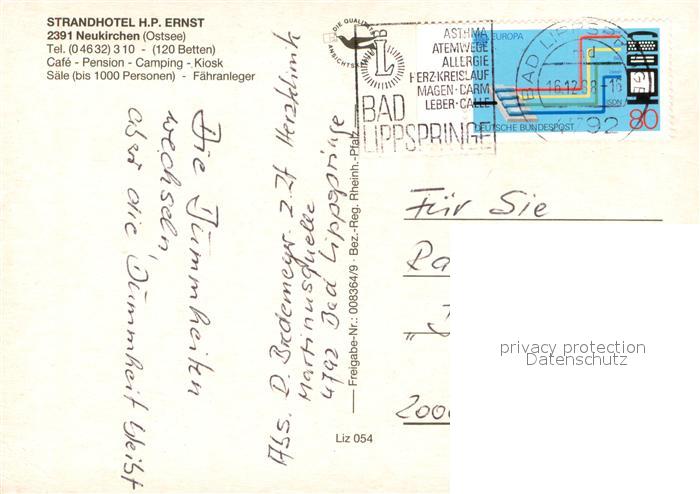 STRANDHOTEL H.P. ERNST
2391 Neukirchen (Ostsee)
Tel. (04632) 310 - (120 Betten)
Café - Pension - Camping - Kiosk
Säle (bis 1000 Personen) - Fähranleger
DIE QUALITÄTS
ANSICHTSKARTE
ASTHMA
ATEMWEGE
ALLERGIE
HERZ·KREISLAUF
MAGEN·DARM
LEBER·GALLE
BAD
LIPPSPRINGE
BAD LIPPSPRINGE
16.12.88-16
4792
EUROPA
ISDN
DEUTSCHE BUNDESPOST
80
Die Dummheiten
wechseln,
aber die Dummheit bleibt
Abs. D. Bredemeyr z.Zt Herzklinik
Martinusquelle
4792 Bad Lippspringe
Freigabe-Nr.: 008364/9 · Bez.-Reg. Rheinh.-Pfalz
Liz 054
Für Sie
Ra
200
privacy protection
Datenschutz